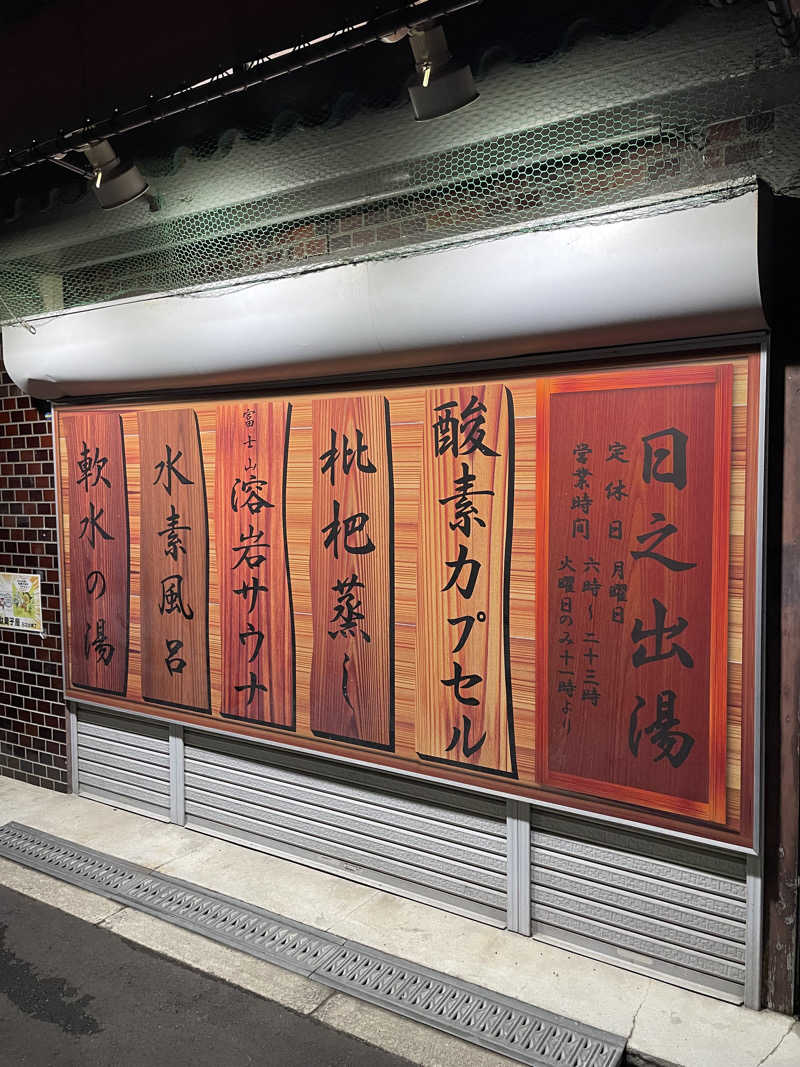 日之出湯
定休日 月曜日
営業時間 六時～二十三時
火曜日のみ十一時より
酸素カプセル
枇杷蒸し
富士山溶岩サウナ
水素風呂
軟水の湯